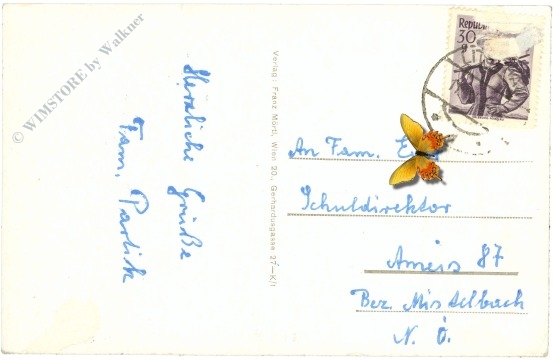 © WIMSTORE by Walkner
Herzliche Grüße
Fam. Partik
Verlag: Franz Mörtl, Wien 20., Gerhardusgasse 27–K/I
Republ
30
An Fam. E
Schuldirektor
Ameis 87
Bez. Mistelbach
N. Ö.